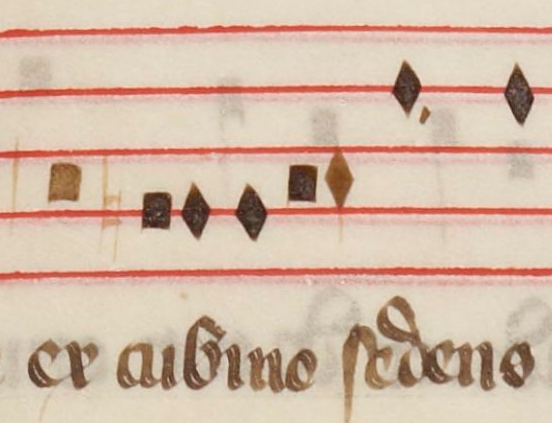 ex cubino sedens